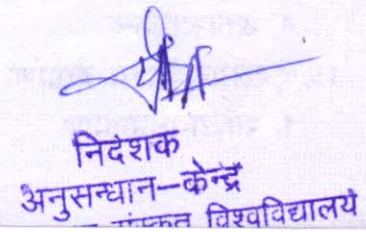 निदेशक
अनुसन्धान—केन्द्र
संस्कृत विश्वविद्यालय